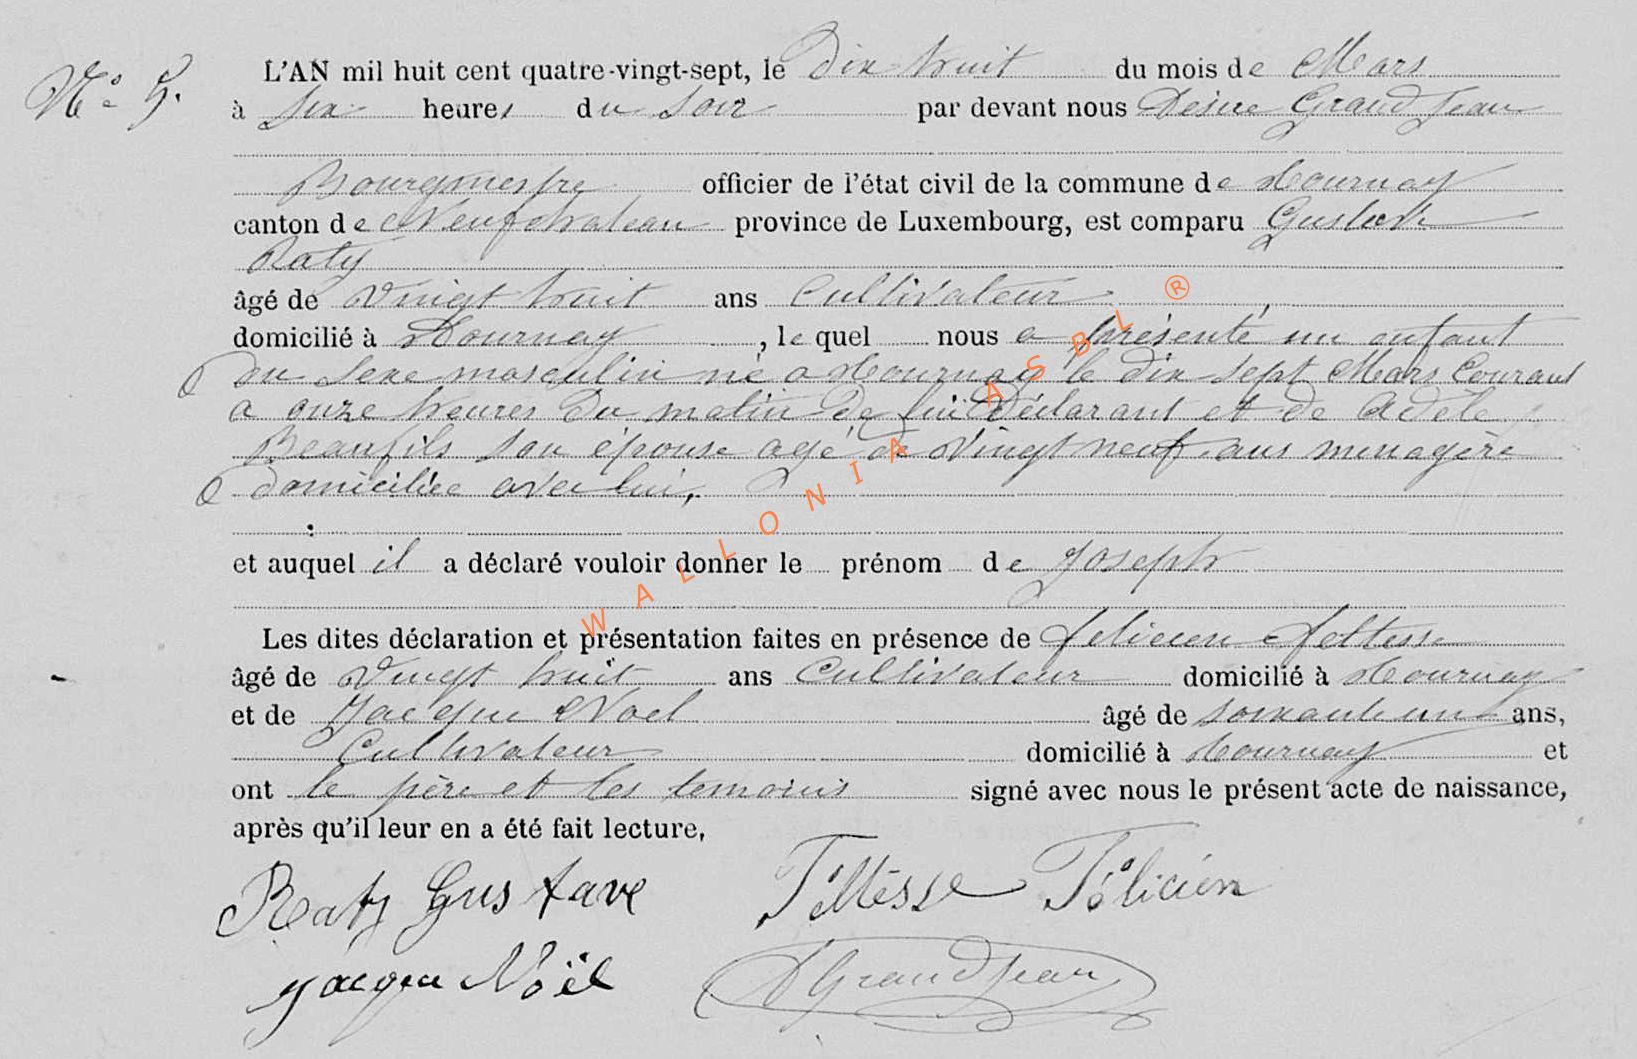 N° 5.
L'AN mil huit cent quatre-vingt-sept, le Dix huit du mois de Mars
à Six heures du Soir par devant nous Désire Grand Jean
Bourgmestre officier de l'état civil de la commune de Tournay
canton de Neufchateau province de Luxembourg, est comparu Gustave
Raty
âgé de Vingt huit ans Cultivateur
domicilié à Tournay, le quel nous a présenté un enfant
du Sexe masculin né a Tournay le dix Sept Mars Courant
a onze heures du matin de lui Déclarant et de Adele
Beaufils Son épouse agé de Vingt neuf ans menagère
domiciliee avec lui,
et auquel il a déclaré vouloir donner le prénom de Joseph
Les dites déclaration et présentation faites en présence de felicien feltesse
âgé de Vingt huit ans Cultivateur domicilié à Tournay
et de Jacque Noel âgé de soixante un ans,
Cultivateur domicilié à Tournay et
ont le père et les temoins signé avec nous le présent acte de naissance,
après qu'il leur en a été fait lecture,
Raty Gustave Féltésse Félicién
Jacque Noël DGrandJean
WALLONIA ASBL ®